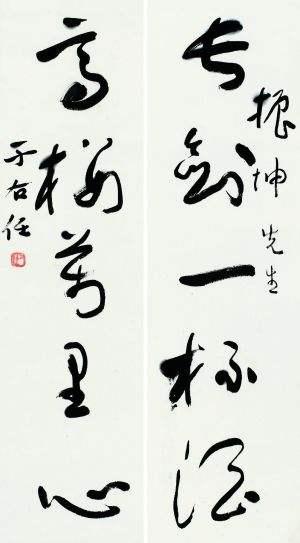 長劍一杯酒
振坤先生
高樓萬里心
于右任